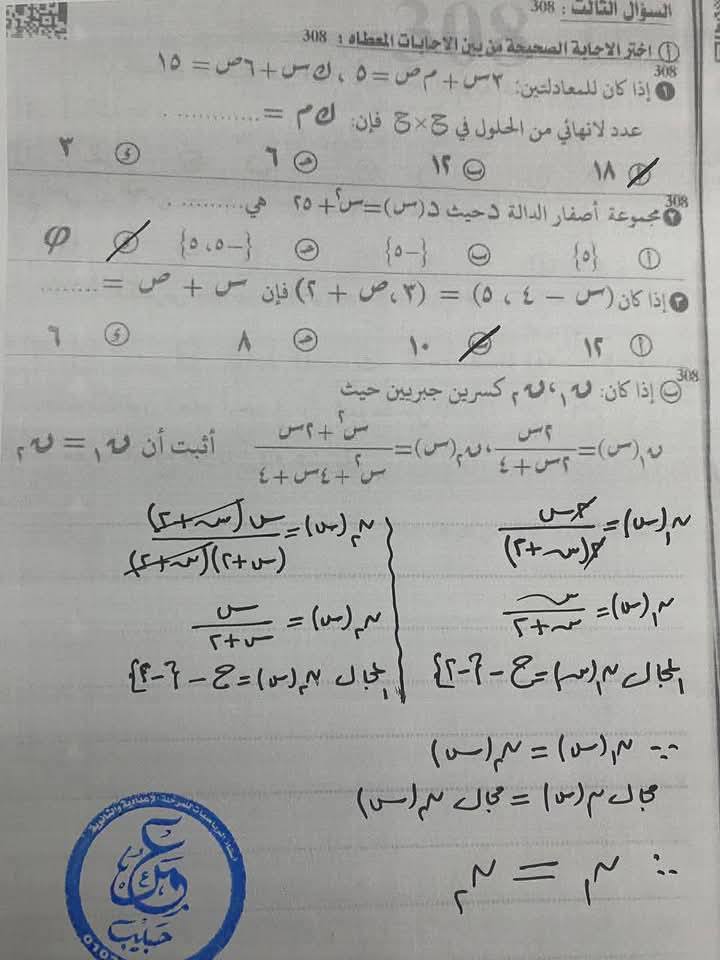 السؤال الثالث : 308
أ اختر الاجابة الصحيحة من بين الاجابات المعطاه : 308
308
١ إذا كان للمعادلتين: ٣س + م ص = ٥ ، ك س + ٦ص = ١٥
عدد لانهائي من الحلول في ح × ح فإن: ك م = ............ .
أ ١٨ ب ١٢ جـ ٦ د ٣
308
٢ مجموعة أصفار الدالة د حيث د(س) = س٢ + ٢٥ هي.......... .
أ {٥} ب {-٥} جـ {-٥، ٥} د φ
٣ إذا كان (س - ٤ ، ٥) = (٣ ، ص + ٢) فإن س + ص = ........
أ ١٢ ب ١٠ جـ ٨ د ٦
308
ب إذا كان: ن١، ن٢ كسرين جبريين حيث
ن١(س) = ٢س / ٢س + ٤ ، ن٢(س) = س٢ + ٢س / س٢ + ٤س + ٤ أثبت أن ن١ = ن٢
ن١(س) = ٢س / ٢(س+٢) ن٢(س) = س(س+٢) / (س+٢)(س+٢)
ن١(س) = س / س+٢ ن٢(س) = س / س+٢
المجال ن١(س) = ح - {-٢} المجال ن٢(س) = ح - {-٢}
∵ ن١(س) = ن٢(س)
مجال ن١(س) = مجال ن٢(س)
∴ ن١ = ن٢
حبيب